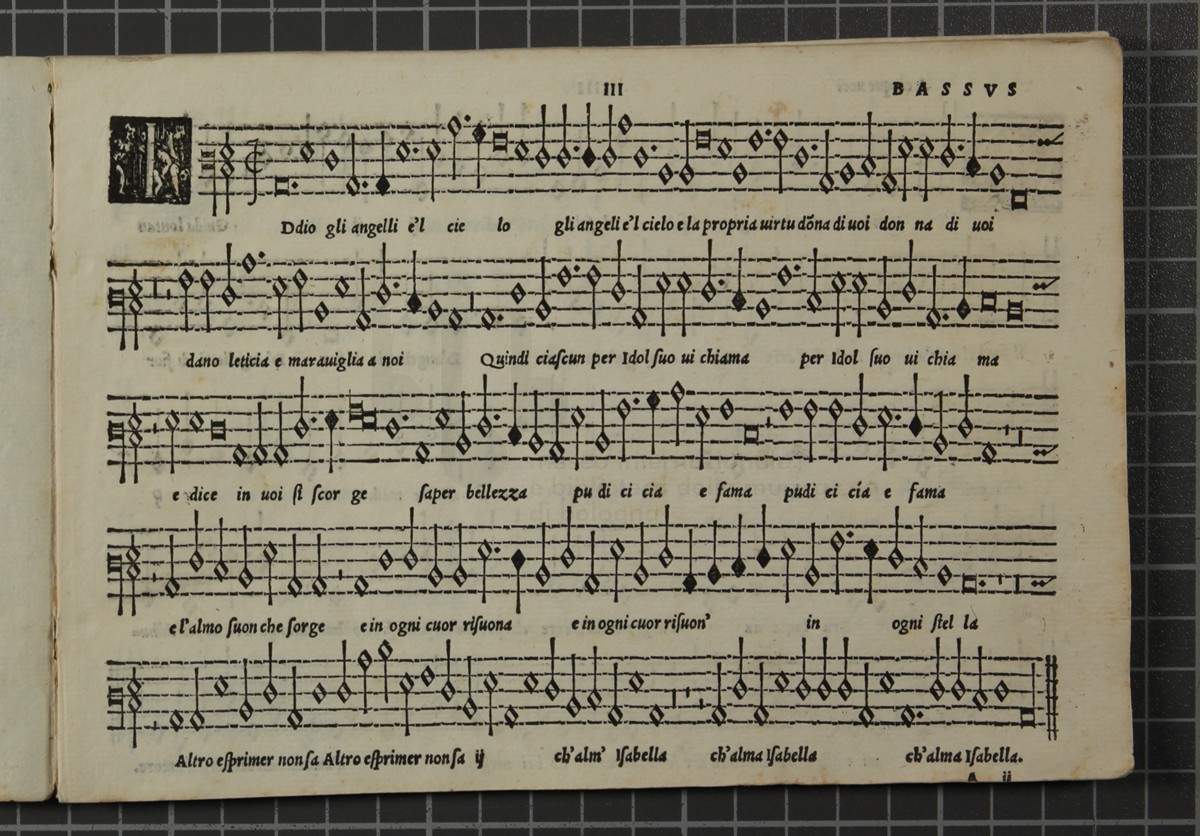 III BASSVS
Ddio gli angelli e'l cie lo gli angeli e'l cielo e la propria uirtu dõna di uoi don na di uoi
dano leticia e marauiglia a noi Quindi ciaſcun per Idol ſuo ui chiama per Idol ſuo ui chia ma
e dice in uoi ſi ſcor ge ſaper bellezza pu di ci cia e fama pudi ci cía e fama
e l'almo ſuon che ſorge e in ogni cuor riſuona e in ogni cuor riſuon' in ogni ſtel la
Altro eſprimer non ſa Altro eſprimer non ſa ij ch'alm' Iſabella ch'alma Iſabella ch'alma Iſabella.
A ij